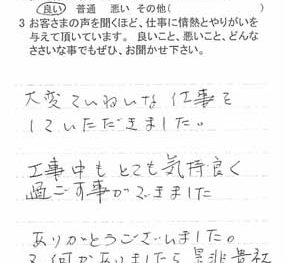 良い 普通 悪い その他( )
3 お客さまの声を聞くほど、仕事に情熱とやりがいを
与えて頂いています。 良いこと、悪いこと、どんな
ささいな事でもぜひ、お聞かせ下さい。
大変ていねいな仕事を
していただきました。
工事中もとても気持良く
過ごす事ができました
ありがとうございました。
又何かありましたら是非貴社